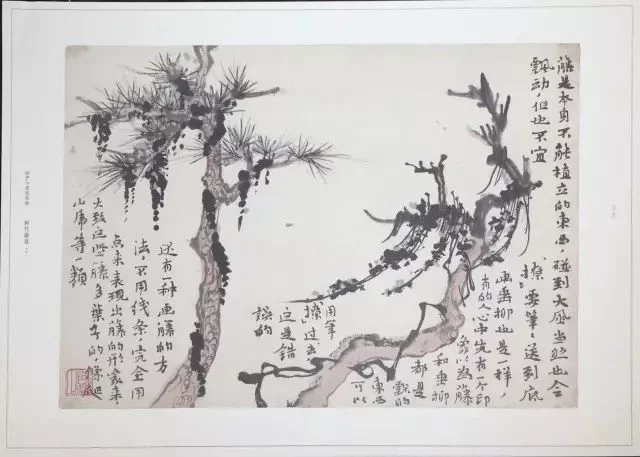 藤是本身不能植立的东西，碰到大風当然也会
飄动，但也不宜
“撩”要笔笔送到底
画垂柳也是一样，
有的人心中先有一个印
象以为藤
和垂柳
都是
飘的
东西
可以
用笔
“撩”过去
这是錯
誤的
还有一种画藤的方
法，不用线条，完全用
点来表现出藤的形象来，
大致这些藤多葉子的，像爬
山虎等一類